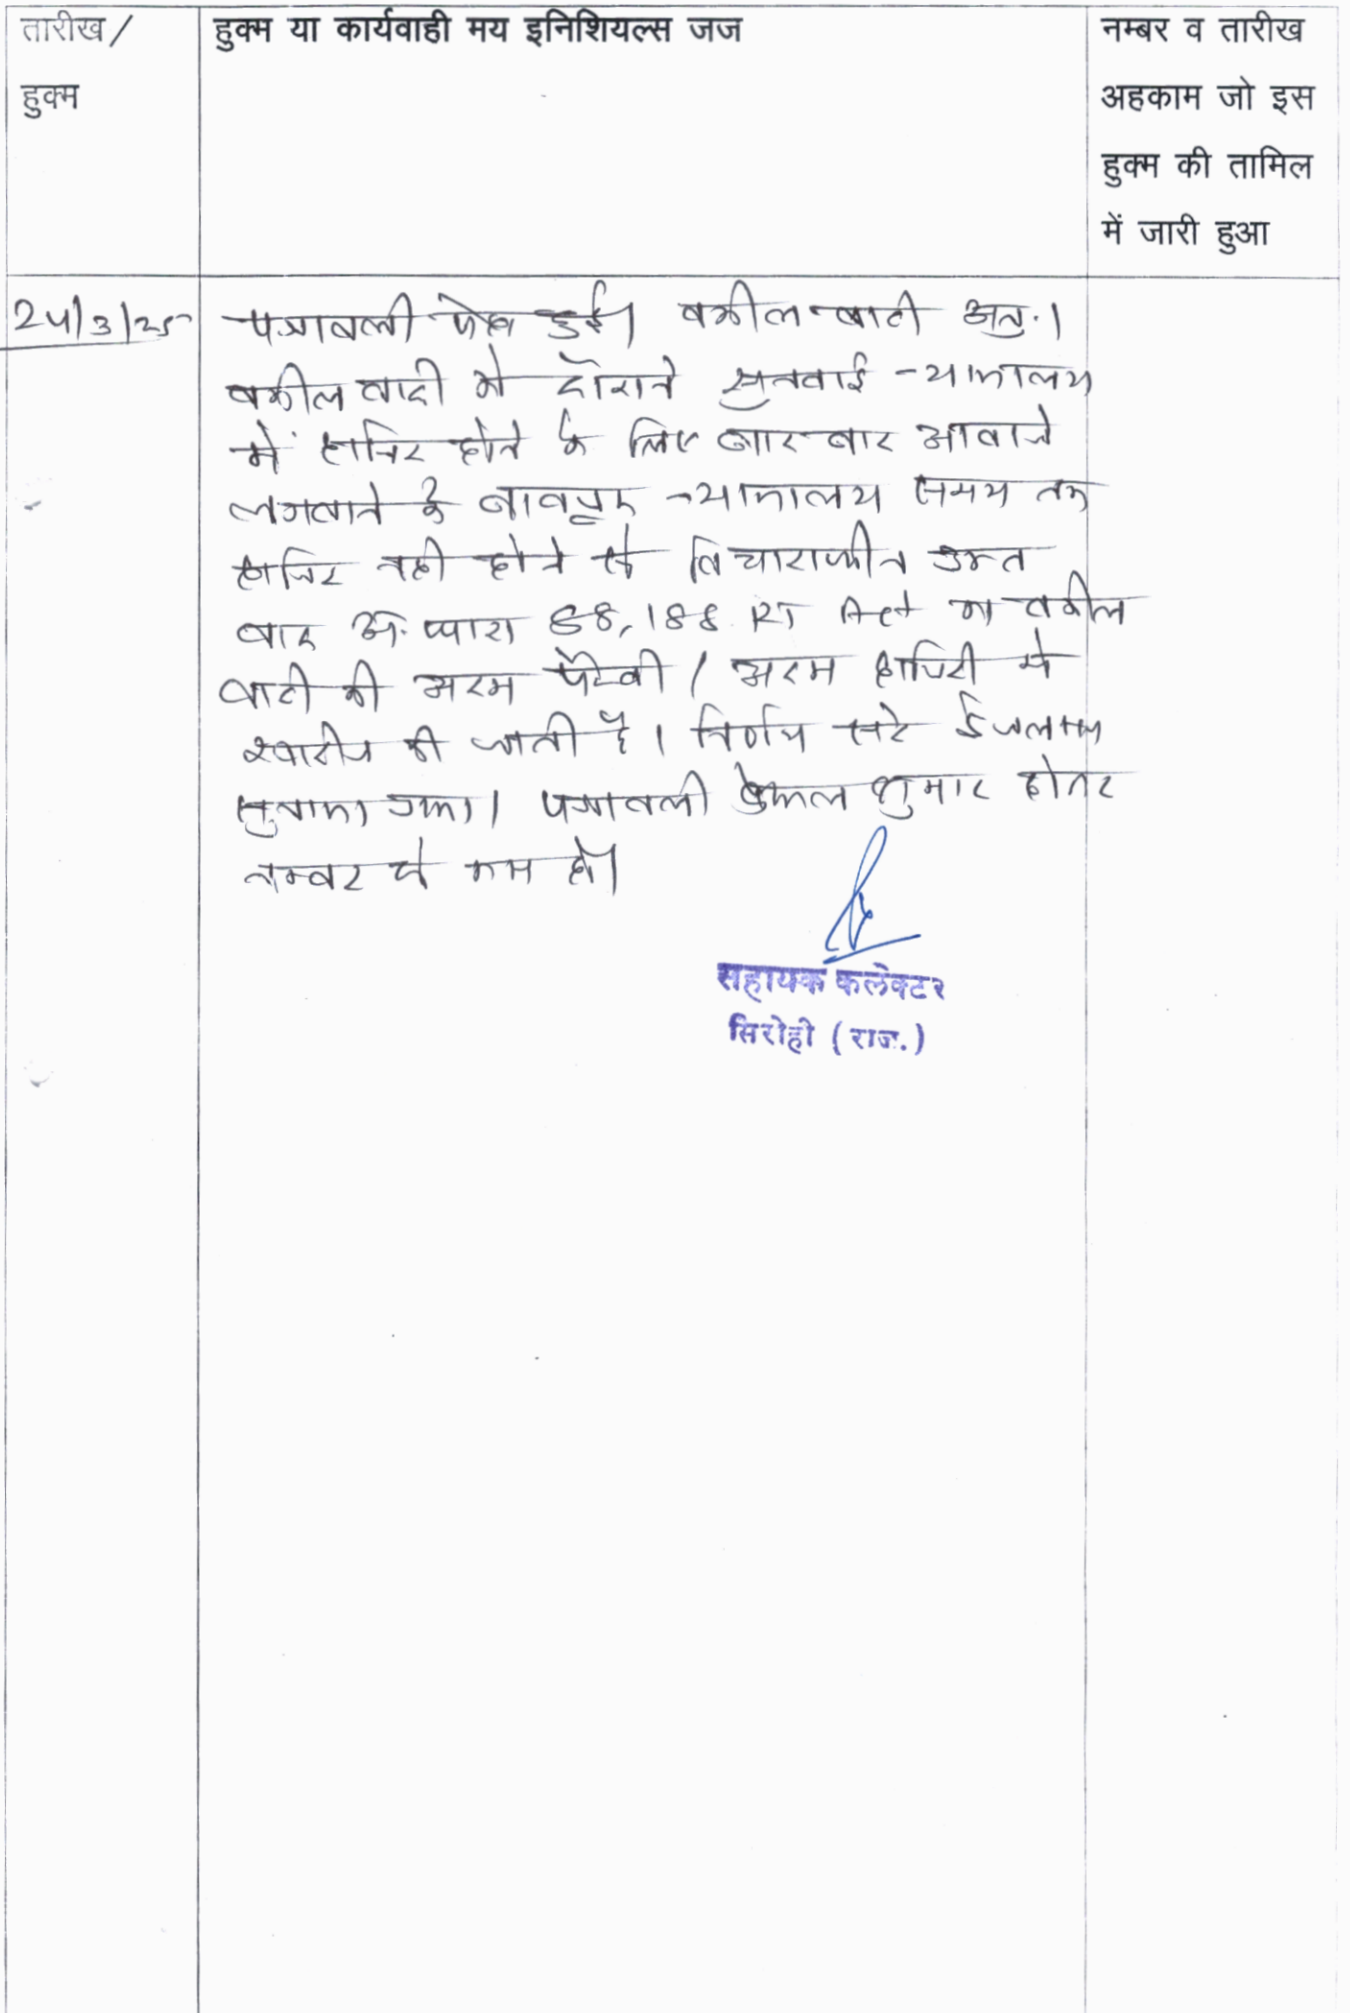 तारीख/
हुक्म
हुक्म या कार्यवाही मय इनिशियल्स जज
नम्बर व तारीख
अहकाम जो इस
हुक्म की तामिल
में जारी हुआ
24/3/25
पत्रावली पेश हुई। वकील वादी अनु.।
वकील वादी को दौराने सुनवाई न्यायालय
में हाजिर होने के लिए बार बार आवाजे
लगवाने के बावजूद न्यायालय समय तक
हाजिर नही होने से विचाराधीन उक्त
वाद अ. धारा 88, 188 RT Act का वकील
वादी की अदम पैरवी / अदम हाजिरी में
खारीज की जाती है। निर्णय सरे ईजलास
सुनाया गया। पत्रावली फैसल शुमार होकर
नम्बर से कम हो।
सहायक कलेक्टर
सिरोही (राज.)